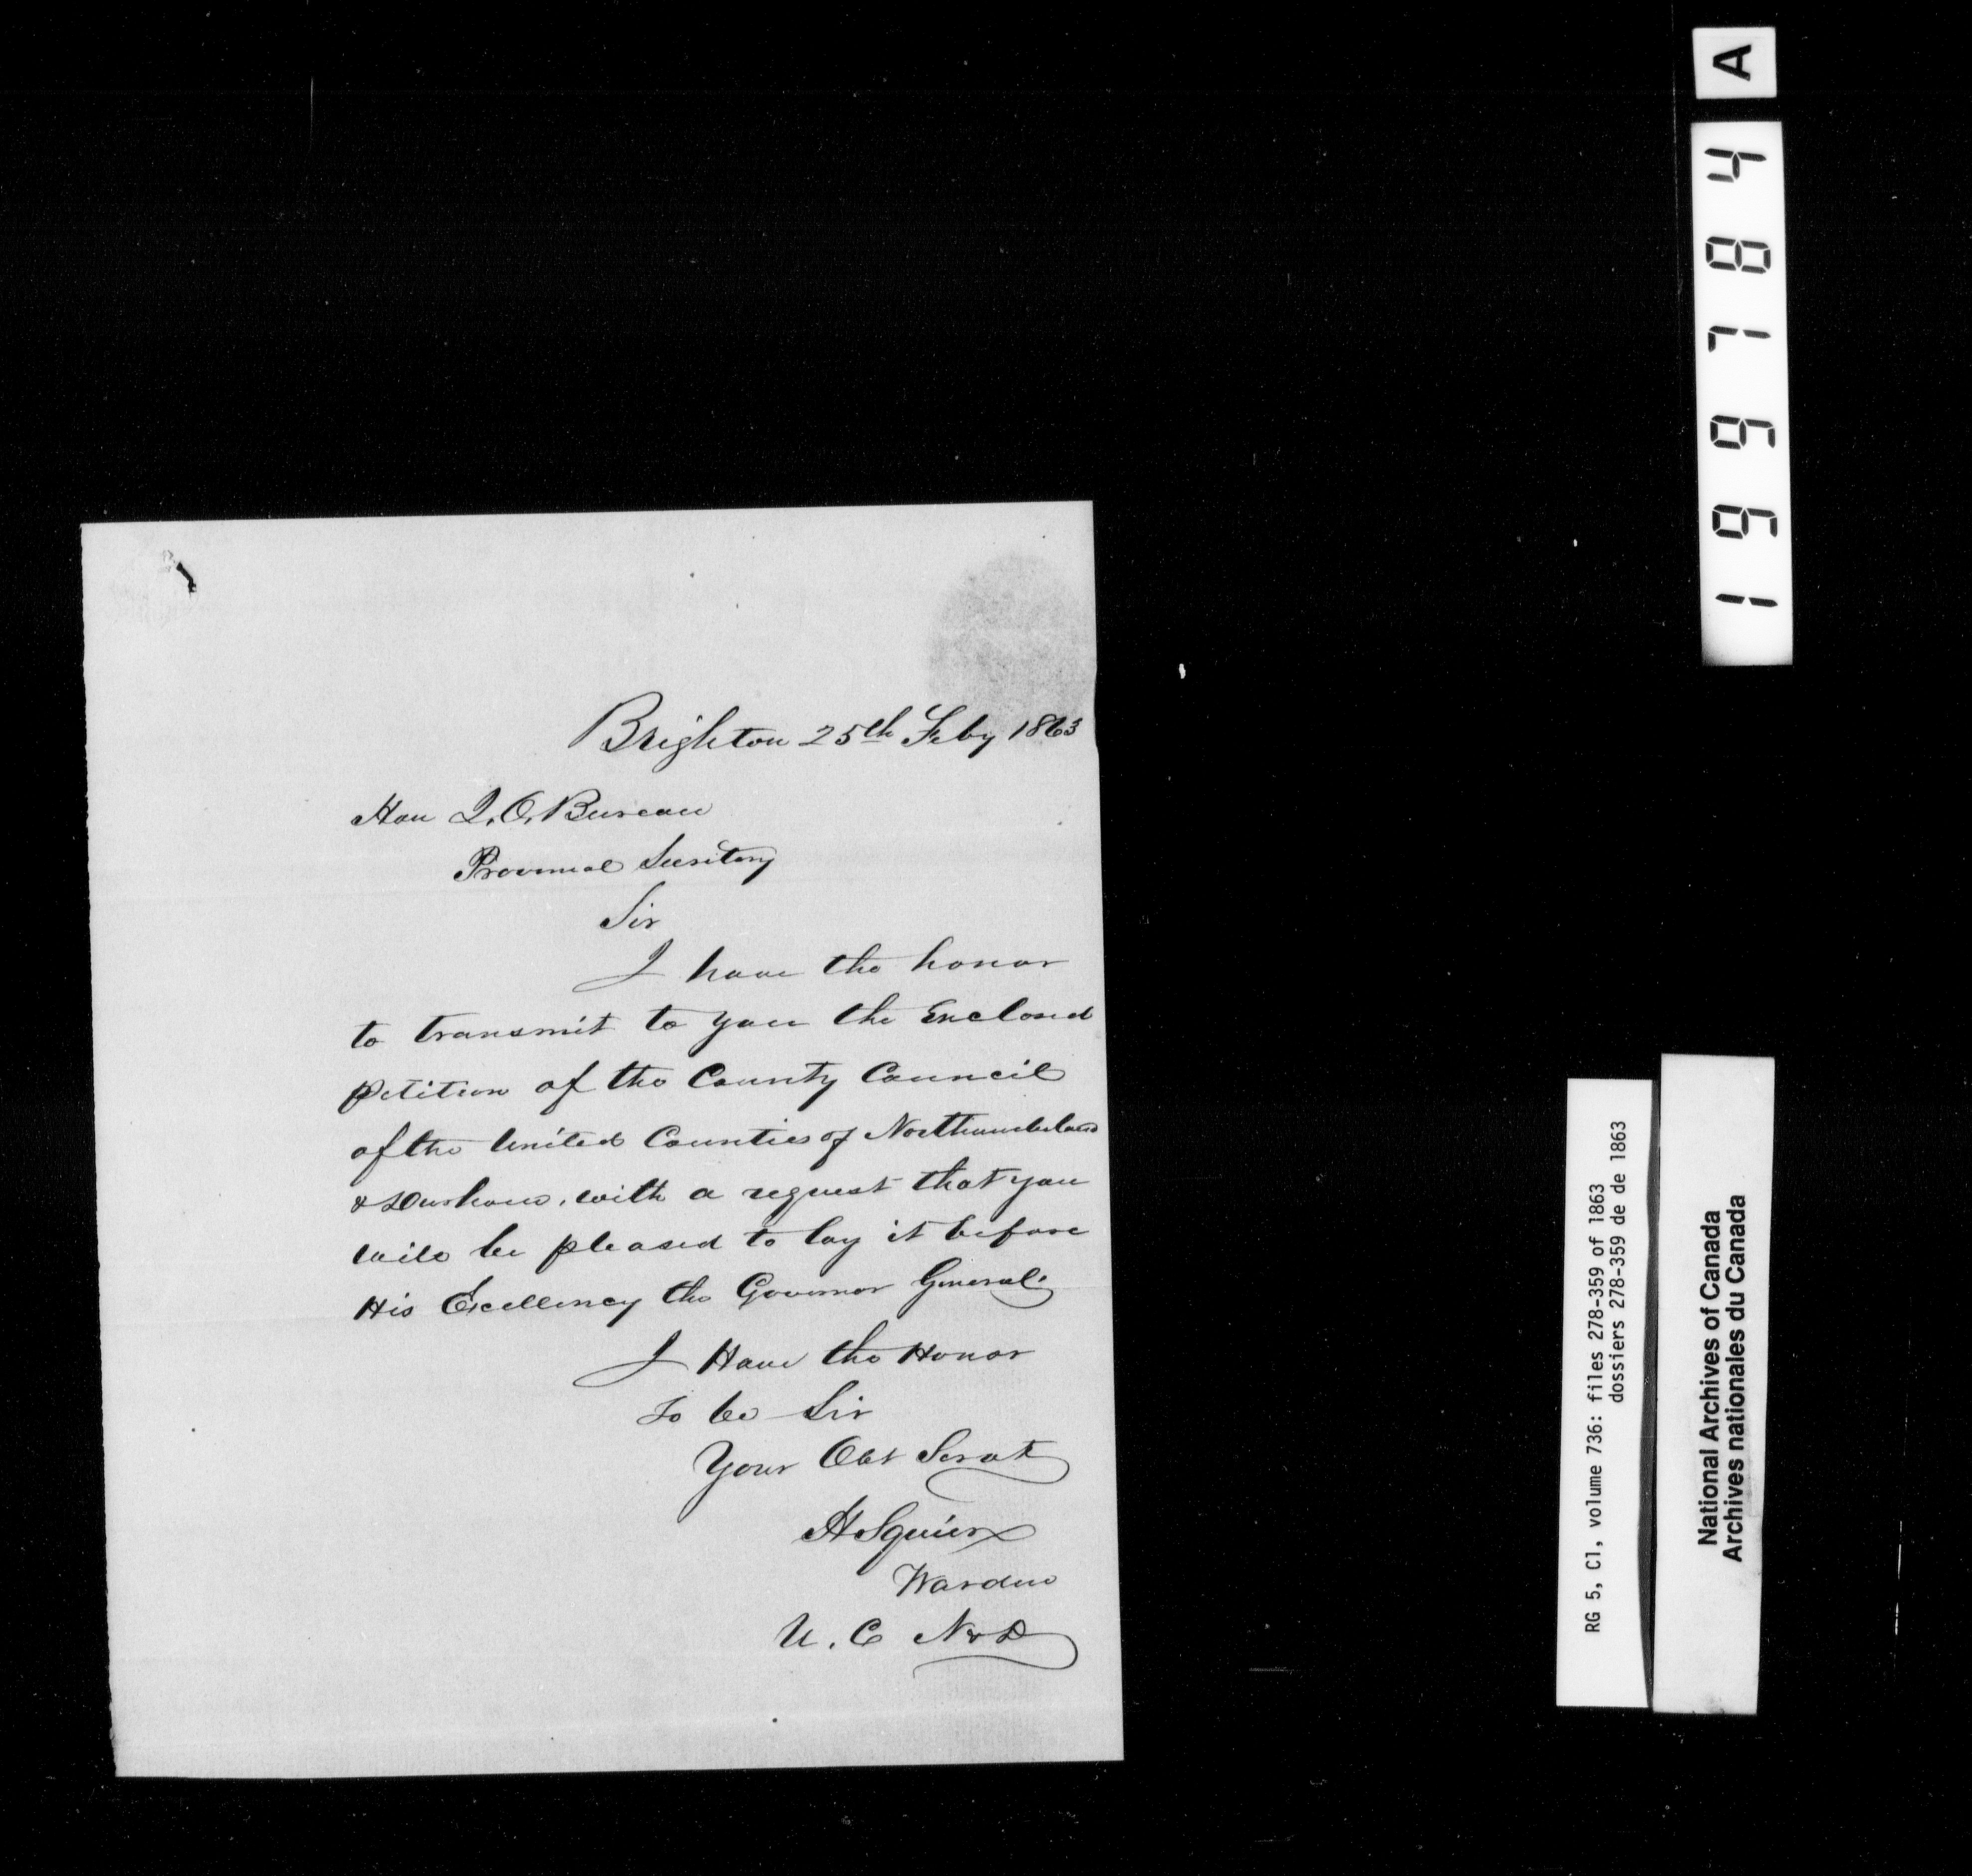 Brighton 25th Feby 1863
Hon J. O. Bureau
Provincial Secretary
Sir
I have the honor
to transmit to you the Enclosed
petition of the County Council
of the United Counties of Northumberland
& Durham, with a request that you
will be pleased to lay it before
His Excellency the Governor General.
I Have the Honor
To be Sir
Your Obt Servt
A Squier
Warden
U. C N & D
A
166184
RG 5, C1, volume 736: files 278-359 of 1863
dossiers 278-359 de de 1863
National Archives of Canada
Archives nationales du Canada